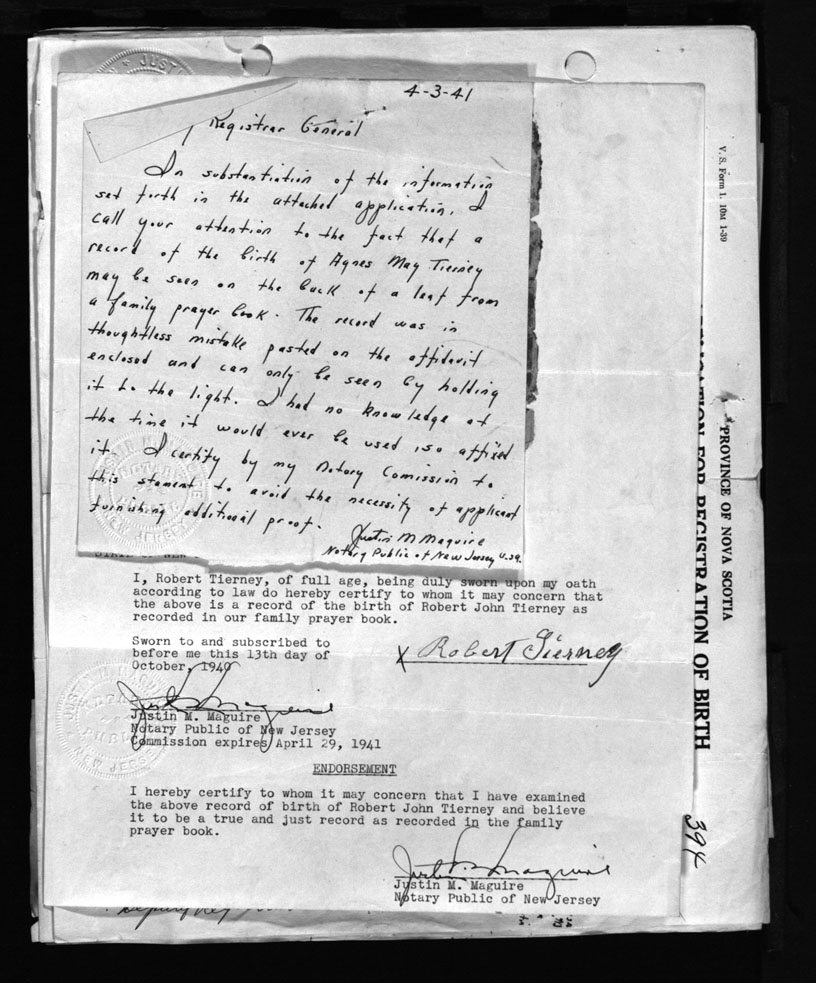 4-3-41
Registrar General
In substantiation of the information
set forth in the attached application, I
call your attention to the fact that a
record of the birth of Agnes May Tierney
may be seen on the back of a leaf from
a family prayer book. The record was in
thoughtless mistake pasted on the affidavit
enclosed and can only be seen by holding
it to the light. I had no knowledge at
the time it would ever be used so affixed
it. I certify by my Notary Comission to
this stament to avoid the necessity of applicant
furnishing additional proof.
Justin M Maguire
Notary Public of New Jersey U.S.A.
I, Robert Tierney, of full age, being duly sworn upon my oath
according to law do hereby certify to whom it may concern that
the above is a record of the birth of Robert John Tierney as
recorded in our family prayer book.
Sworn to and subscribed to
before me this 13th day of
October, 1940
X Robert Tierney
Justin M. Maguire
Justin M. Maguire
Notary Public of New Jersey
Commission expires April 29, 1941
ENDORSEMENT
I hereby certify to whom it may concern that I have examined
the above record of birth of Robert John Tierney and believe
it to be a true and just record as recorded in the family
prayer book.
Justin M. Maguire
Justin M. Maguire
Notary Public of New Jersey
V. S. Form 1. 10M 1-39
PROVINCE OF NOVA SCOTIA
FOR REGISTRATION OF BIRTH
394